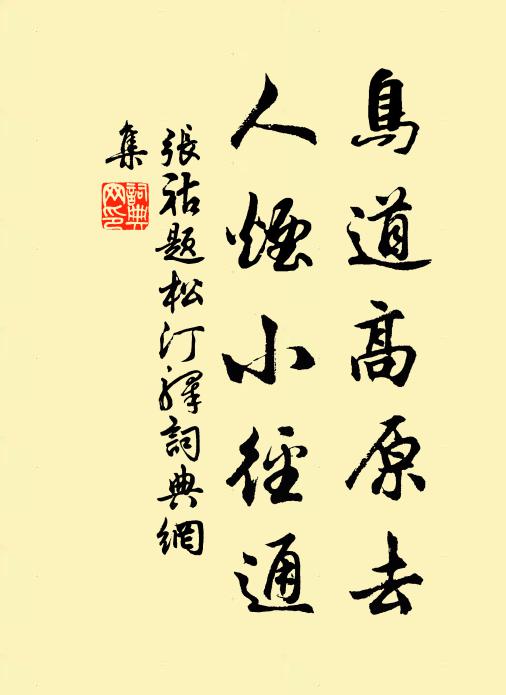 鳥道高原去
人煙小徑通
張祜題松汀驛詞典網
集
詞典
网印